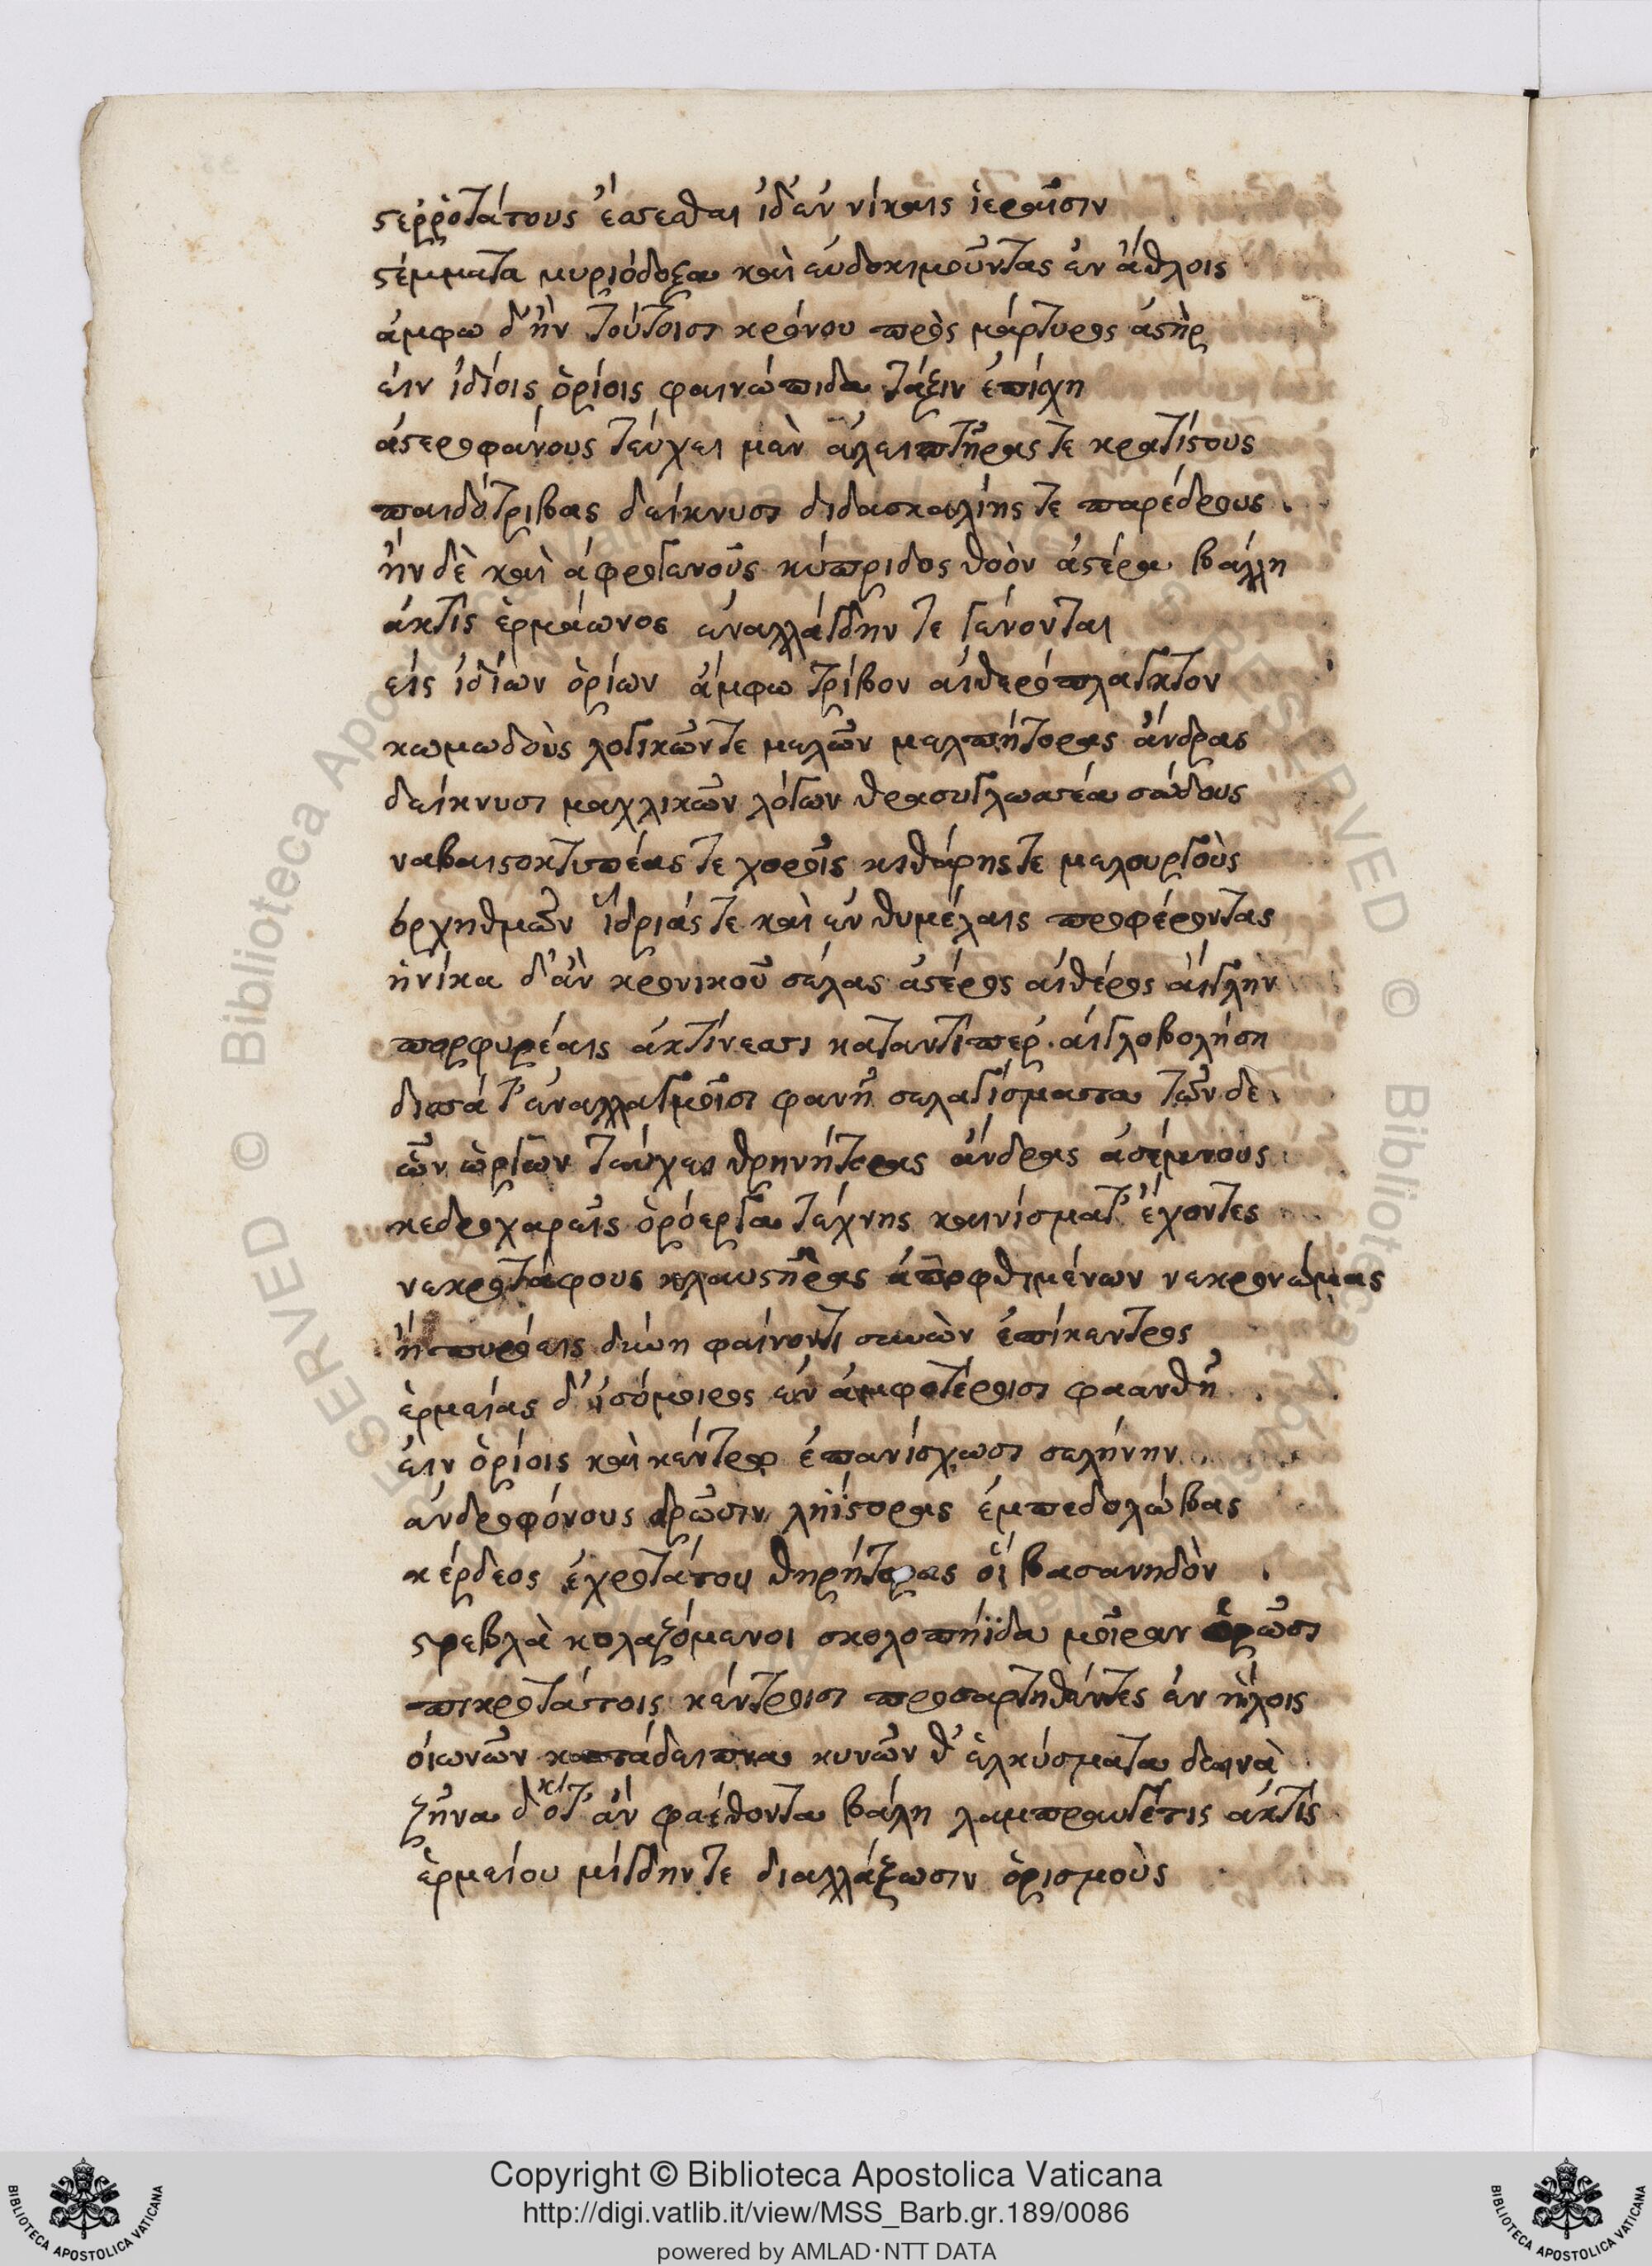 στερροτάτους ἔσσεσθαι ἰδ' ἐν νίκαις ἱεραῖσιν
στέμματα μυριόδοξα καὶ εὐδοκιμοῦντας ἐν ἄθλοις
ἄμφω δ' ἢν τούτοισι κρόνου πρὸς μάρτυρος ἀστὴρ
εἰν ἰδίοις ὁρίοις φαινώπιδα τάξιν ἐπίσχῃ
ἀστεροφαίνους τεύχει μὲν ἀλειπτῆρας τε κρατίστους
παιδότριβας δείκνυσι διδασκαλίης τε παρέδρους
ἢν δὲ καὶ ἀφρογενοῦς κύπριδος θοὸν ἀστέρα βάλλῃ
ἀκτὶς ἑρμάωνος ἐναλλάγδην τε γένονται
εἰς ἰδίων ὁρίων ἄμφω τρίβον αἰθερόπλαγκτον
κωμωδοὺς λογικῶν τε μελῶν μελπήτορας ἄνδρας
δείκνυσι μαχλικῶν λόγων θρασυγλωσσέα
ναβαιστοκτυπέας τε χοροῖς κιθάρης τε μελουργοὺς
ὀρχηθμῶν ἵδριάς τε καὶ ἐν θυμέλαις προφέροντας
ἡνίκα δ' ἂν κρονικοῦ σέλας ἀστέρος αἰθέρος αἴγλην
πορφυρέαις ἀκτίνεσσι καταντιπερ αἰγλοβολήσῃ
δισσά τ' ἐναλλαγμοῖσι φανῇ σελαγίσματα τῶν δε
ὧν ὡργίων τεύχει θρηνήτορας ἄνδρας ἀσέμνους
κεδροχαρεῖς ὀρόεργα τέχνης καινίσματ' ἔχοντες
νεκροτάφους κλαυστῆρας ἀπορφθιμένων νεκρονώμας
ἢ πυρόεις δύνῃ φαίνοντι συνὼν ἐπίκεντρος
ἑρμείας δ' ἰσόμοιρος ἐν ἀμφοτέροισι φαανθῇ
εἰν ὁρίοις καὶ κέντρῳ ἐπανίσχωσι σελήνην
ἀνδροφόνους δρῶσιν ληίστορας ἐμπεδολώβας
κέρδεος ἐχροτάτου θηρήτορας οἳ βασανηδὸν
στρεβλὰ κολαζόμενοι σκολοπήϊδα μοῖραν ὁρῶσι
πικροτάτοις κέντροισι προσαρτηθέντες ἐν ἥλοις
οἰωνῶν κατάδειπνα κυνῶν θ' ἑλκύσματα δεινὰ
ζῆνα δ' ὅτ' ἂν φαέθοντα βάλῃ λαμπραυγέτις ἀκτὶς
ἑρμείου μίγδην τε διαλλάξωσιν ὁρισμοὺς
Copyright © Biblioteca Apostolica Vaticana
http://digi.vatlib.it/view/MSS_Barb.gr.189/0086
powered by AMLAD·NTT DATA